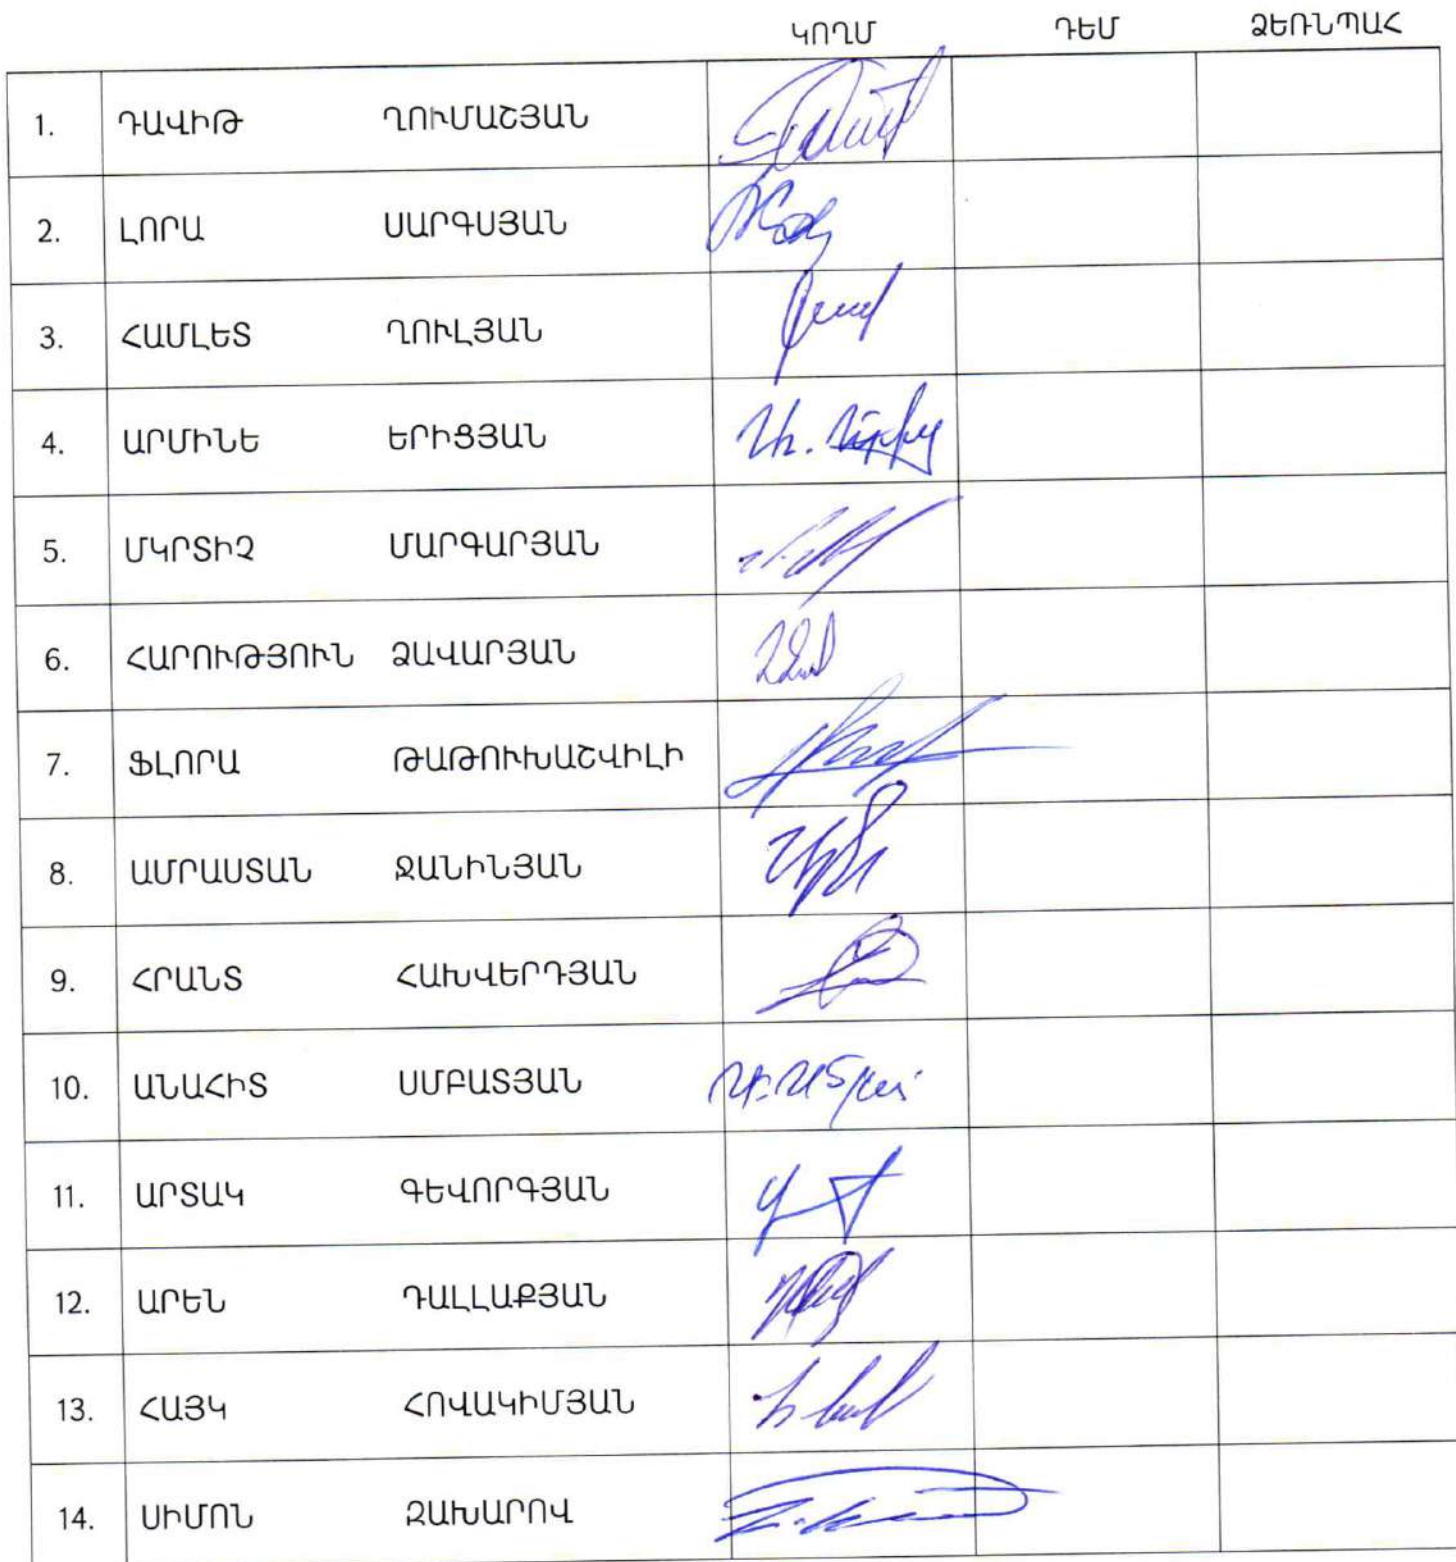 ԿՈՂՄ ԴԵՄ ՁԵՌՆՊԱՀ
1. ԴԱՎԻԹ ՂՈՒՄԱՇՅԱՆ
2. ԼՈՐԱ ՍԱՐԳՍՅԱՆ
3. ՀԱՄԼԵՏ ՂՈՒԼՅԱՆ
4. ԱՐՄԻՆԵ ԵՐԻՑՅԱՆ
5. ՄԿՐՏԻՉ ՄԱՐԳԱՐՅԱՆ
6. ՀԱՐՈՒԹՅՈՒՆ ՁԱՎԱՐՅԱՆ
7. ՖԼՈՐԱ ԹԱԹՈՒԽԱՇՎԻԼԻ
8. ԱՄՐԱՍՏԱՆ ՋԱՆԻՆՅԱՆ
9. ՀՐԱՆՏ ՀԱԽՎԵՐԴՅԱՆ
10. ԱՆԱՀԻՏ ՍՄԲԱՏՅԱՆ
11. ԱՐՏԱԿ ԳԵՎՈՐԳՅԱՆ
12. ԱՐԵՆ ԴԱԼԼԱՔՅԱՆ
13. ՀԱՅԿ ՀՈՎԱԿԻՄՅԱՆ
14. ՍԻՄՈՆ ԶԱԽԱՐՈՎ